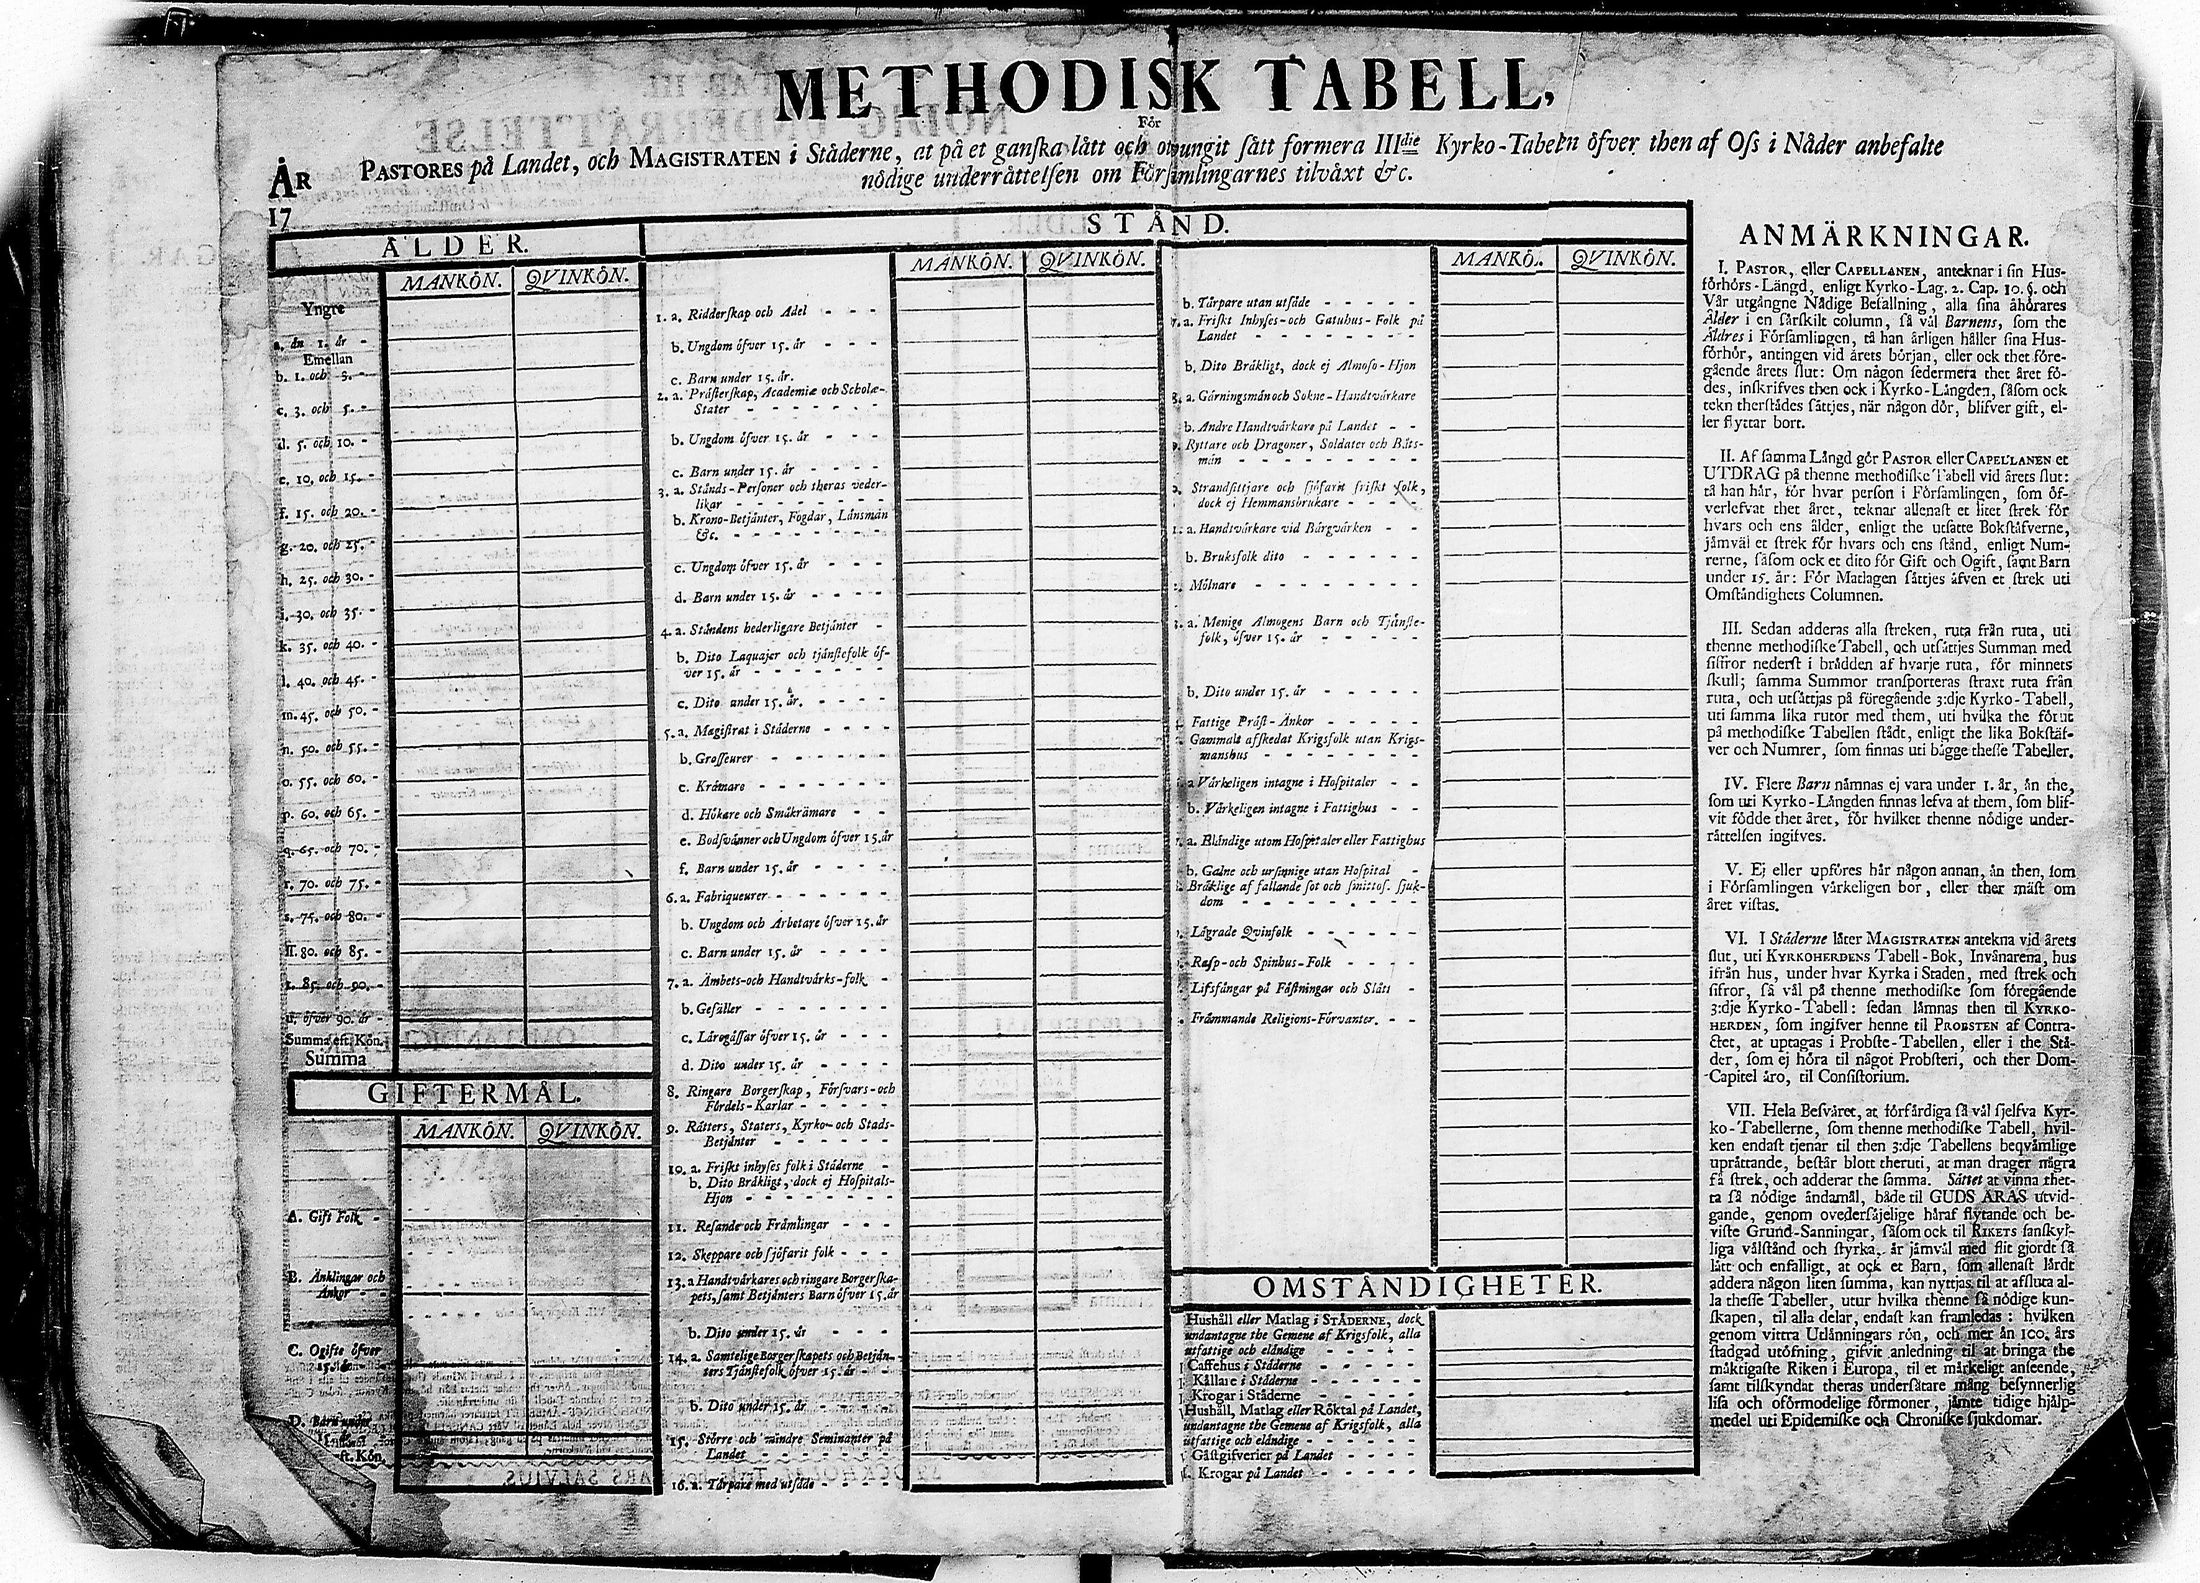 METHODISK TABELL,
För
PASTORES på Landet, och MAGISTRATEN i Städerne, at på et ganska lätt och otvungit sätt formera IIIdie Kyrko-Tabeln öfver then af Oss i Nåder anbefalte
nödige underrättelsen om Församlingarnes tilväxt &c.
ÅR
17
ÅLDER.
MANKÖN. QVINKÖN.
Yngre
a. än 1. år -
Emellan
b. 1. och 3. -
c. 3. och 5. -
d. 5. och 10. -
e. 10. och 15. -
f. 15. och 20. -
g. 20. och 25. -
h. 25. och 30. -
i. 30. och 35. -
k. 35. och 40. -
l. 40. och 45. -
m. 45. och 50. -
n. 50. och 55. -
o. 55. och 60. -
p. 60. och 65. -
q. 65. och 70. -
r. 70. och 75. -
s. 75. och 80. -
ſſ. 80. och 85. -
t. 85. och 90. -
u. öfver 90. år -
Summa eft. Kön.
Summa
GIFTERMÅL.
MANKÖN. QVINKÖN.
A. Gift Folk -
B. Änklingar och
Änkor - -
C. Ogifte öfver
15. år -
D. Barn under
15. år -
eft. Kön.
STÅND.
MANKÖN. QVINKÖN.
1. a. Ridderskap och Adel - - -
b. Ungdom öfver 15. år - - -
c. Barn under 15. år.
2. a. Prästerskap, Academiæ och Scholæ-
Stater - - - - - -
b. Ungdom öfver 15. år - - -
c. Barn under 15. år - - - -
3. a. Stånds-Personer och theras veder-
likar - - - - - - -
b. Krono-Betjänter, Fogdar, Länsmän
&c. - - - - - - -
c. Ungdom öfver 15. år - - - -
d. Barn under 15. år - - - -
4. a. Ståndens hederligare Betjänter -
b. Dito Laquajer och tjänstefolk öf-
ver 15. år - - - - - -
c. Dito under 15. år. - - - -
5. a. Magistrat i Städerne - - -
b. Grosseurer - - - - - -
c. Krämare - - - - - -
d. Hökare och Småkrämare - -
e. Bodsvänner och Ungdom öfver 15. år
f. Barn under 15. år - - - -
6. a. Fabriqueurer - - - - - -
b. Ungdom och Arbetare öfver 15. år
c. Barn under 15. år - - - -
7. a. Ämbets-och Handtvärks-folk -
b. Gesäller - - - - - -
c. Läregåssar öfver 15. år - - -
d. Dito under 15. år - - - -
8. Ringare Borgerskap, Försvars-och
Fördels-Karlar - - - - -
9. Rätters, Staters, Kyrko-och Stads-
Betjänter - - - - - -
10. a. Friskt inhyses folk i Städerne -
b. Dito Bräkligt, dock ej Hospitals-
Hjon - - - - - - -
11. Resande och Främlingar - - -
12. Skeppare och sjöfarit folk - - -
13. a Handtvärkares och ringare Borgerska-
pets, samt Betjänters Barn öfver 15. år
b. Dito under 15. år - - - -
14. a. Samtelige Borgerskapets och Betjän-
ters Tjänstefolk öfver 15. år - -
b. Dito under 15. år - - - -
15. Större och mindre Seminanter på
Landet - - - - - - -
16. a. Tårpare med utsäde - - - -
MANKÖ. QVINKÖN.
b. Tårpare utan utsäde - - - - -
7. a. Friskt Inhyses-och Gatuhus-Folk på
Landet - - - - - - - -
b. Dito Bräkligt, dock ej Almoso-Hjon
8. a. Gärningsmän och Sokne-Handtvärkare
b. Andre Handtvärkare på Landet - -
9. Ryttare och Dragoner, Soldater och Båts-
män - - - - - - - -
0. Strandsittjare och sjöfarit friskt folk,
dock ej Hemmansbrukare - - - -
1. a. Handtvärkare vid Bärgvärken - -
b. Bruksfolk dito - - - - - -
Mölnare - - - - - - - -
3. a. Menige Almogens Barn och Tjänste-
folk, öfver 15. år - - - - -
b. Dito under 15. år - - - - -
Fattige Präst-Änkor - - - - -
Gammalt afskedat Krigsfolk utan Krigs-
manshus - - - - - - - -
a Värkeligen intagne i Hospitaler - -
b. Värkeligen intagne i Fattighus - -
a. Eländige utom Hospitaler eller Fattighus
b. Galne och ursinnige utan Hospital -
Bräklige af fallande sot och smittos. sjuk-
dom - - - - - - - -
Lägrade Qvinfolk - - - - - -
Rasp-och Spinhus-Folk - - - -
Lifsfångar på Fästningar och Slått -
Främmande Religions-Förvanter. - -
OMSTÄNDIGHETER.
Hushåll eller Matlag i STÄDERNE, dock
undantagne the Gemene af Krigsfolk, alla
utfattige och eländige - - - - -
Caffehus i Städerne - - - - -
Källare i Städerne - - - - -
Krogar i Städerne - - - - -
Hushåll, Matlag eller Röktal på Landet,
undantagne the Gemene af Krigsfolk, alla
utfattige och eländige - - - - -
Gästgifverier på Landet - - - -
Krogar på Landet - - - - -
ANMÄRKNINGAR.
I. PASTOR, eller CAPELLANEN, anteknar i sin Hus-
förhörs-Längd, enligt Kyrko-Lag. 2. Cap. 10. §. och
Vår utgångne Nådige Befallning, alla sina åhörares
Ålder i en särskilt column, så väl Barnens, som the
Äldres i Församlingen, tå han årligen håller sina Hus-
förhör, antingen vid årets början, eller ock thet före-
gående årets slut: Om någon sedermera thet året fö-
des, inskrifves then ock i Kyrko-Längden, såsom ock
tekn therstädes sättjes, när någon dör, blifver gift, el-
ler flyttar bort.
II. Af samma Längd gör PASTOR eller CAPELLANEN et
UTDRAG på thenne methodiske Tabell vid årets slut:
tå han här, för hvar person i Församlingen, som öf-
verlefvat thet året, teknar allenast et litet strek för
hvars och ens ålder, enligt the utsatte Bokstäfverne,
jämväl et strek för hvars och ens stånd, enligt Num-
rerne, såsom ock et dito för Gift och Ogift, samt Barn
under 15. år: För Matlagen sättjes äfven et strek uti
Omständighets Columnen.
III. Sedan adderas alla streken, ruta från ruta, uti
thenne methodiske Tabell, och utsättjes Summan med
siffror nederst i brädden af hvarje ruta, för minnets
skull; samma Summor transporteras straxt ruta från
ruta, och utsättjas på föregående 3:dje Kyrko-Tabell,
uti samma lika rutor med them, uti hvilka the förut
på methodiske Tabellen stådt, enligt the lika Bokstäf-
ver och Numrer, som finnas uti bägge thesse Tabeller.
IV. Flere Barn nämnas ej vara under 1. år, än the,
som uti Kyrko-Längden finnas lefva at them, som blif-
vit födde thet året, för hvilket thenne nödige under-
rättelsen ingifves.
V. Ej eller upföres här någon annan, än then, som
i Församlingen värkeligen bor, eller ther mäst om
året vistas.
VI. I Städerne låter MAGISTRATEN antekna vid årets
slut, uti KYRKOHERDENS Tabell-Bok, Invånarena, hus
ifrån hus, under hvar Kyrka i Staden, med strek och
sifror, så väl på thenne methodiske som föregående
3:dje Kyrko-Tabell: sedan lämnas then til KYRKO-
HERDEN, som ingifver henne til PROBSTEN af Contra-
ctet, at uptagas i Probste-Tabellen, eller i the Stä-
der, som ej höra til något Probsteri, och ther Dom-
Capitel äro, til Consistorium.
VII. Hela Besväret, at förfärdiga så väl sjelfva Kyr-
ko-Tabellerne, som thenne methodiske Tabell, hvil-
ken endast tjenar til then 3:dje Tabellens beqvämlige
uprättande, består blott theruti, at man drager några
få strek, och adderar the samma. Sättet at vinna thet-
ta så nödige ändamål, både til GUDS ÄRAS utvid-
gande, genom ovedersäjelige häraf flytande och be-
viste Grund-Sanningar, såsom ock til RIKETS sanskyl-
liga välstånd och styrka, är jämväl med flit gjordt så
lätt och enfalligt, at ock et Barn, som allenast lärdt
addera någon liten summa, kan nyttjas til at afsluta al-
la thesse Tabeller, utur hvilka thenne så nödige kun-
skapen, til alla delar, endast kan framledas: hvilken
genom vittra Utlänningars rön, och mer än 100. års
stadgad utöfning, gifvit anledning til at bringa the
mäktigaste Riken i Europa, til et märkeligt anseende,
samt tilskyndat theras undersåtare mång besynnerlig
lisa och oförmodelige förmoner, jämte tidige hjälp-
medel uti Epidemiske och Chroniske sjukdomar.